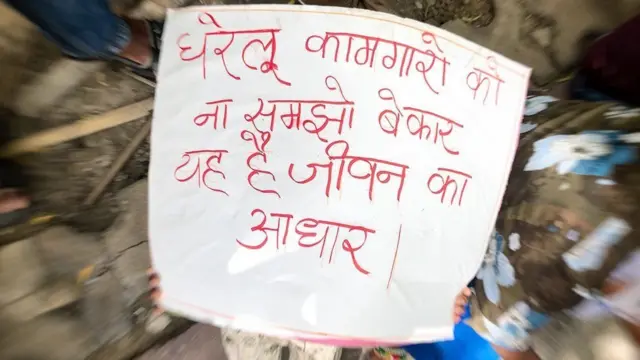 घरेलू कामगारो को
ना समझो बेकार
यह है जीवन का
आधार।